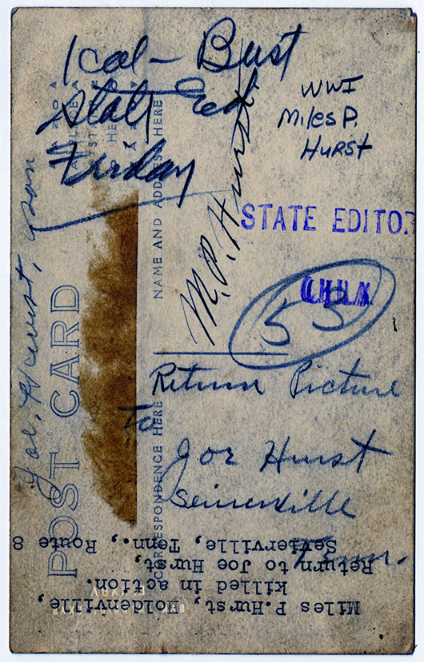 1 col - Bust
State Ed
Friday
WWI
Miles P.
Hurst
M.P. Hurst
STATE EDITO
55
Return Picture
To
Joe Hurst
Seiverville
Tenn.
Joe, Hurst, son
POST CARD
CORRESPONDENCE HERE
NAME AND ADDRESS HERE
Miles P.Hurst, Holdenville,
killed in action.
Return to Joe Hurst,
Sevierville, Tenn., Route 8